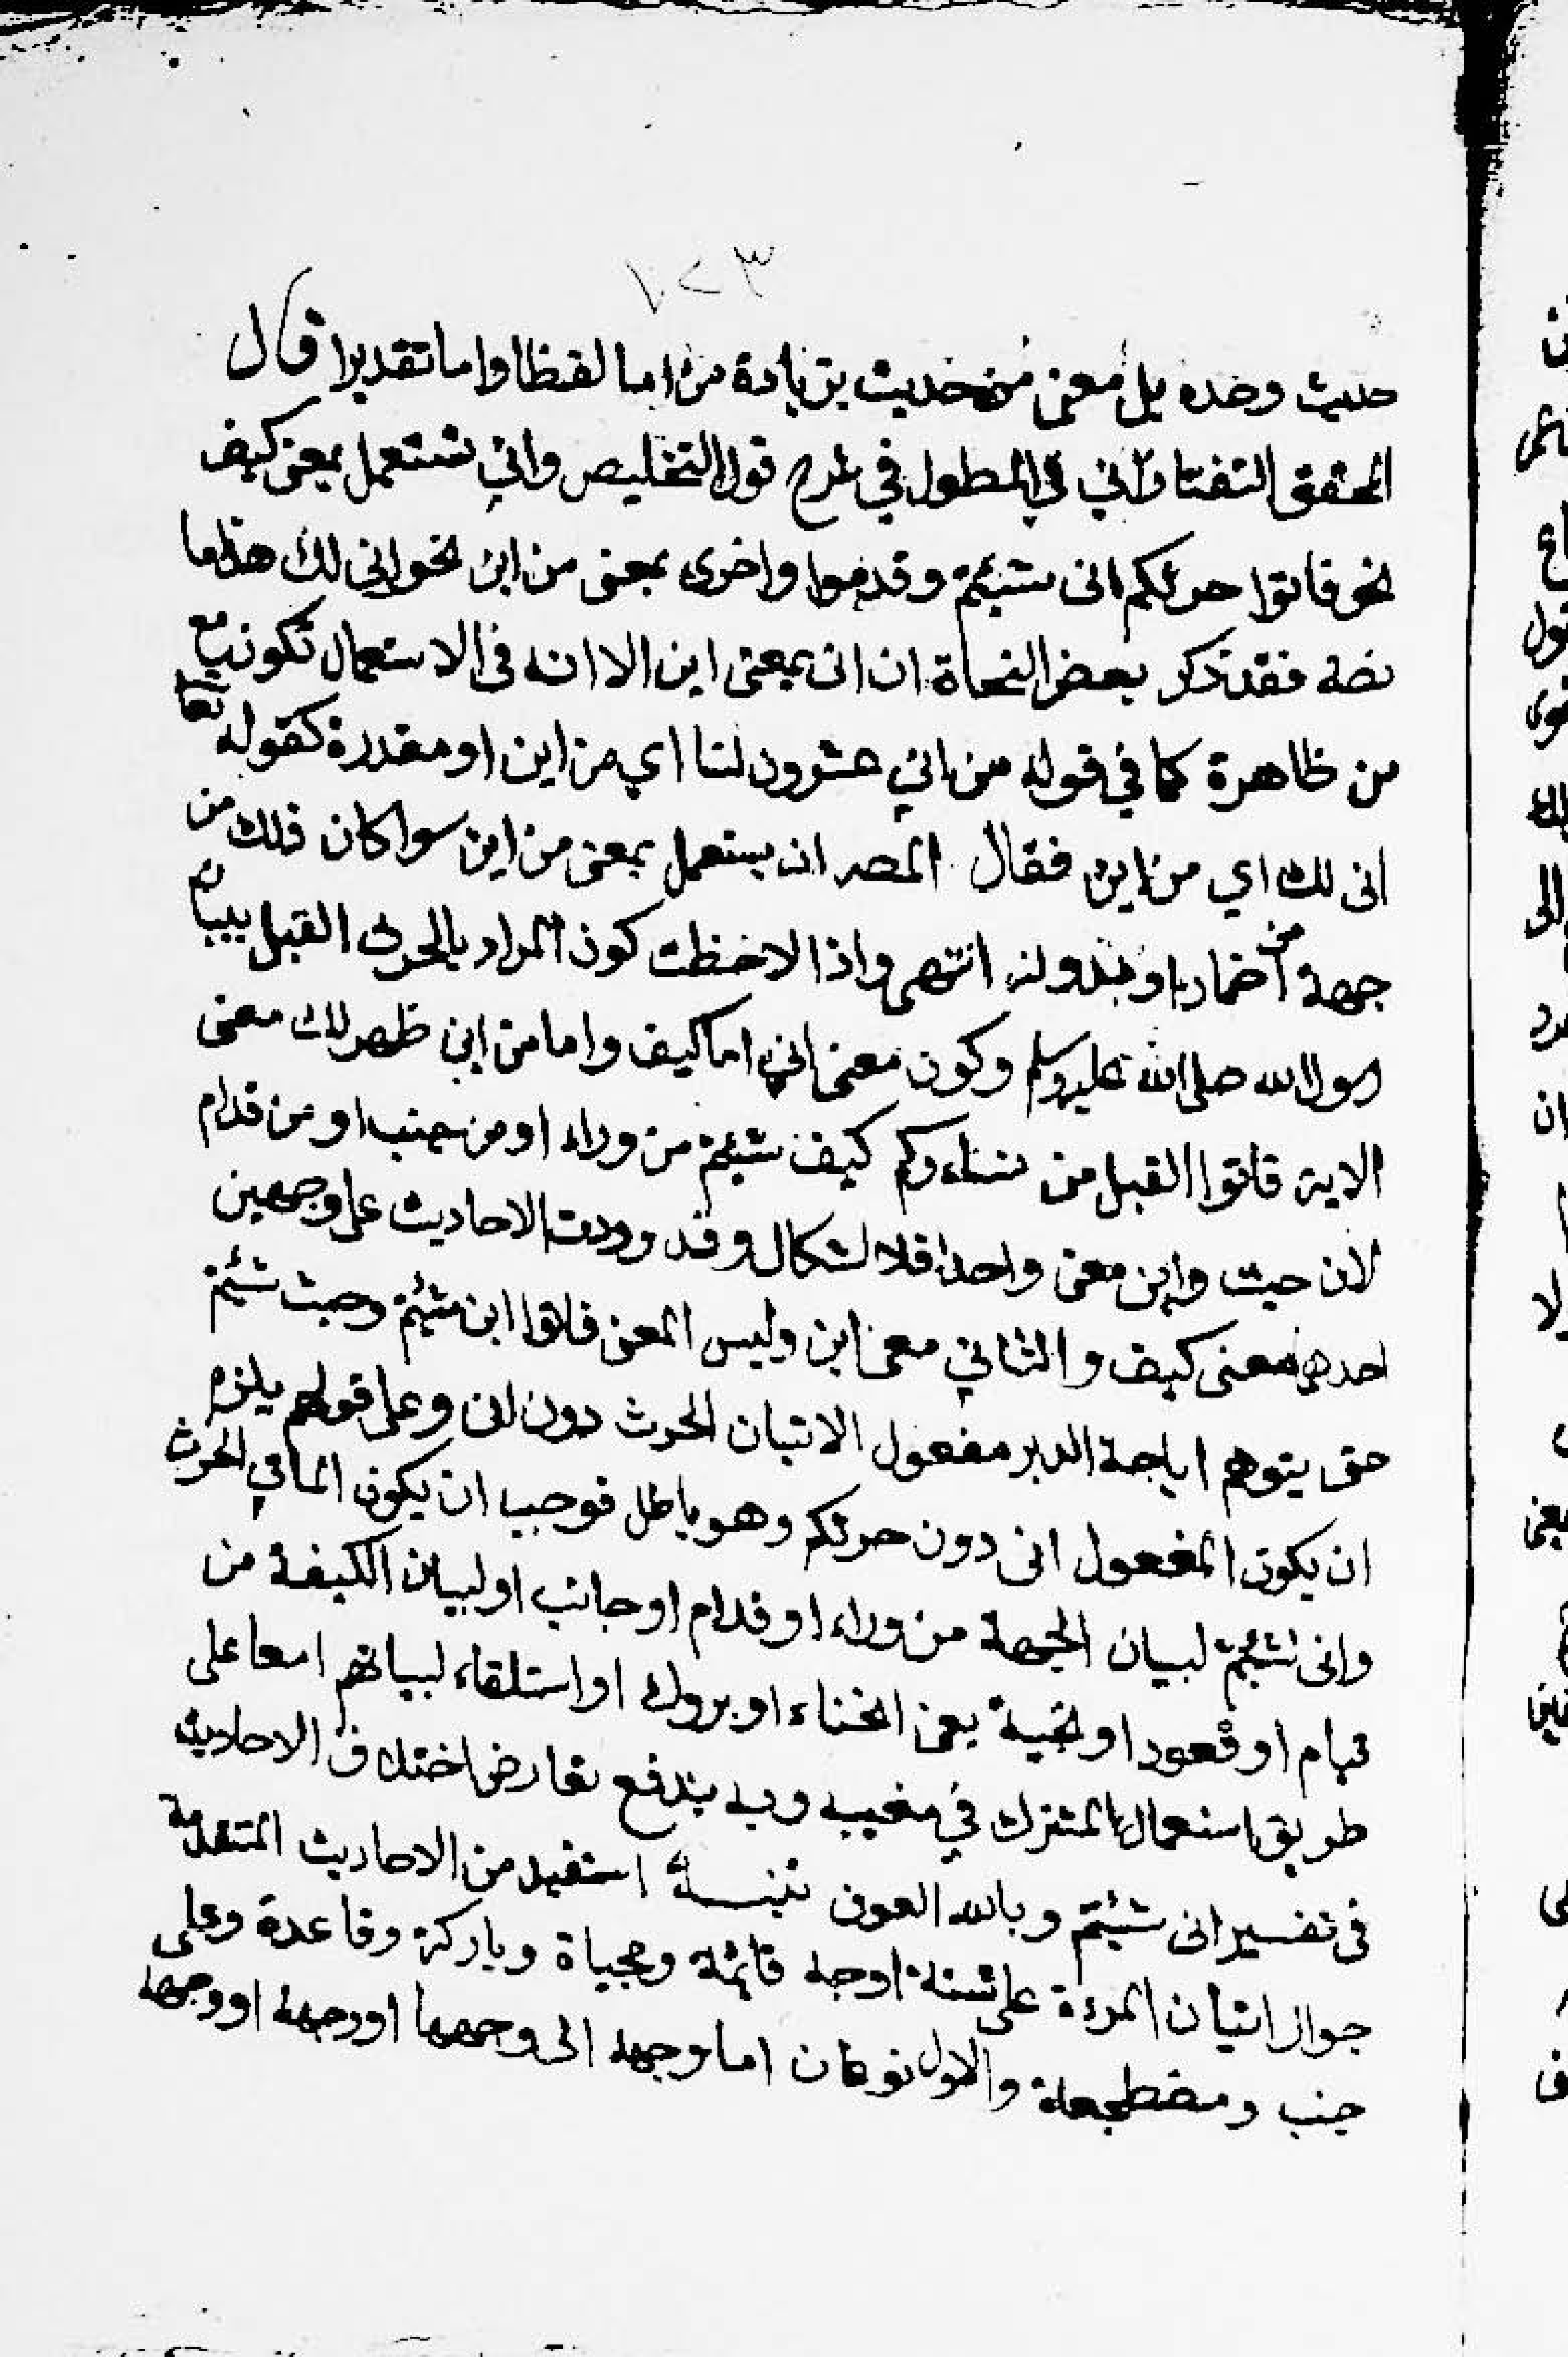 ١٠٢٣
حيث وحده بل معنى من حيث بزيادة من اما لفظا واما تقديرا قال
المحقق التفتازاني في المطول في شرح قول التخليص واني تستعمل بمعنى كيف
نحو فاتوا حرثكم انى شيئتم وقدموا واخرى بمعنى من اين نحو انى لك هذا ما
نصه فقد ذكر بعض النحاة ان انى بمعنى اين الا انه في الاستعمال تكون مع
من ظاهرة كما في قوله من اني عشرون لنا اي من اين او مقدرة كقوله تعا
انى لك اي من اين فقال المصـ ان يستعمل بمعنى من اين سوا كان ذلك من
جهة اضمار من او بدونه انتهى واذا لاحظت كون المراد بالحرث القبل ببيان
رسول الله صلى الله عليه وسلم وكون معنى اني اما كيف واما من اين ظهر لك معنى
الاية فاتوا القبل من نساءكم كيف شيئتم من وراء او من جنب او من قدام
لان حيث واين معنى واحدا فلا اشكال وقد وردت الاحاديث على وجهين
احدهما معنى كيف والثاني معنى اين وليس المعنى فاتوا اين شيئتم وحيث شيئتم
حتى يتوهم اباحة الدبر مفعول الاتيان الحرث دون انى وعلى قولهم يلزم
ان يكون المفعول انى دون حرثكم وهو باطل فوجب ان يكون الماتي الحرث
وانى شيئتم لبيان الجهة من وراء او قدام او جانب او لبيان الكيفة من
قيام او قعود او تجبية بمعنى انحناء او بروك او استلقاء لبيانهم امعا على
طريق استعمال المشترك في معنييه وبه يندفع تعارض اختلاف الاحاديث
في تفسير انى شيئتم وبالله العون تنبيه استفيد من الاحاديث المتقدمة
جواز اتيان المرءة على ستة اوجه قائمة ومجباة وباركة وقاعدة وعلى
جنب ومضطجعة والاول نوعان اما وجهه الى وجهها او وجهه او وجهه